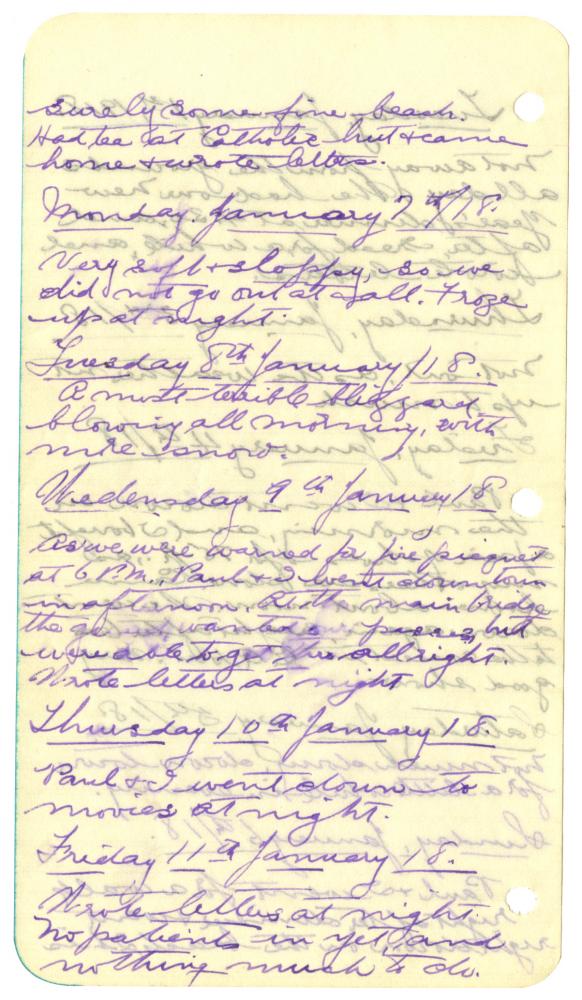 surely some fine beach.
Had tea at Catholic hut & came
home & wrote letters.
Monday. January 7th/18.
Very soft & sloppy, so we
did not go out at all. Froze
up at night.
Tuesday 8th January/18.
A most terrible blizzard,
blowing all morning, with
snow.
Wednesday 9th January 18
As we were warned for fire picquet
at 6 P.M., Paul & I went down town
in afternoon. At the main bridge
the wanted passes, but
were able to get thro allright.
Wrote letters at night
Thursday 10th January 18.
Paul & I went down to
movies at night.
Friday 11th January 18.
Wrote letters at night.
No patients in yet, and
nothing much to do.